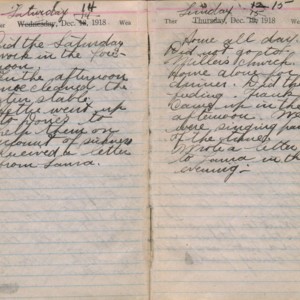 Saturday 14
Wednesday, Dec. 1918 Wea
Did the Saturday
work in the fore
noon.
In the afternoon
cleaned the
stable.
went up
to to
help them on
account of sickness
Received a letter
from Laura.
Sunday 15
Ther Thursday, Dec. 1918
Home all day.
Did not go to
Church
Home alone for
dinner. Did the
feeding. Frank
came up in the
afternoon. We
were singing part
of the time.
Wrote a letter
to Laura in the
evening.